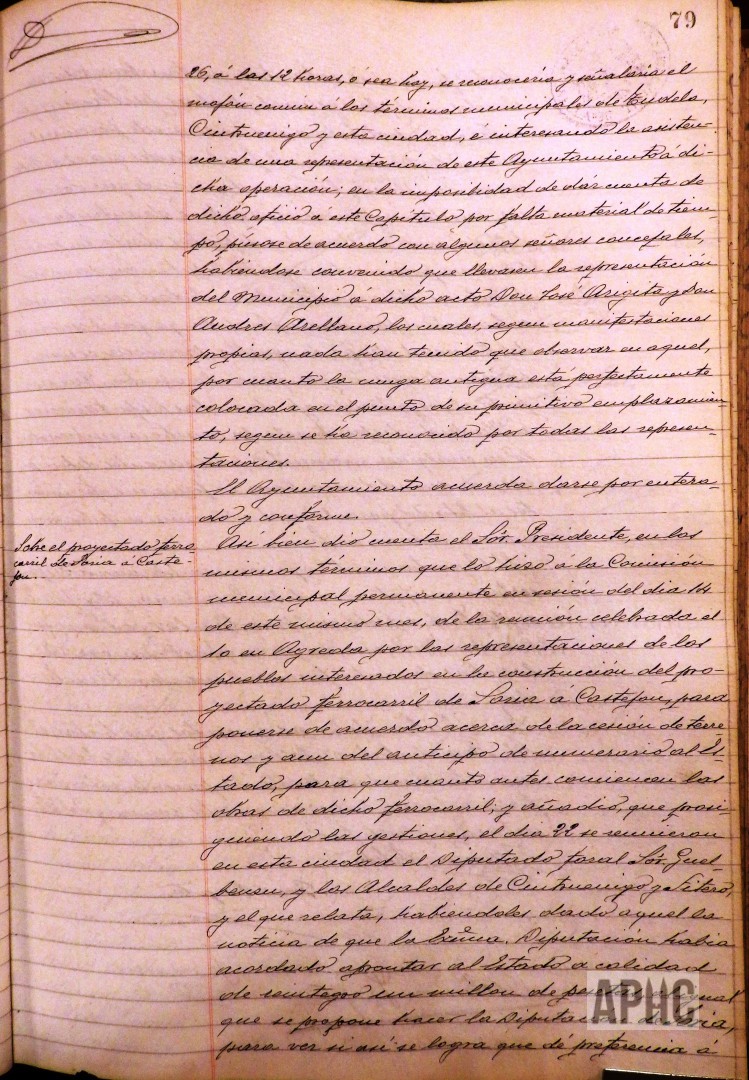 79
26, á las 12 horas, ó sea hoy, se reconocería y señalaría el
mojón comun á los términos municipales de Tudela,
Cintruenigo y esta ciudad, é interesando la asisten-
cia de una representación de este Ayuntamiento á di-
cha operación; en la imposibilidad de dár cuenta de
dicho oficio á este Capitulo por falta material de tiem-
po, púsose de acuerdo con algunos señores concejales,
habiéndose convenido que llevasen la representación
del Municipio á dicho acto Don José Arigita y Don
Andres Arellano, los cuales, segun manifestaciones
propias, nada han tenido que observar en aquel,
por cuanto la muga antigua está perfectamente
colocada en el punto de su primitivo emplazamien-
to, segun se ha reconocido por todas las represen-
taciones.
El Ayuntamiento acuerda darse por entera-
do y conforme.
Sobre el proyectado ferro
carril de Soria a Caste-
jon.
Asi bien dio cuenta el Sór. Presidente, en los
mismos términos que lo hizo á la Comisión
municipal permanente en sesión del dia 14
de este mismo mes, de la reunión celebrada el
10 en Agreda por las representaciones de los
pueblos interesados en la construcción del pro-
yectado ferrocarril de Soria á Castejon, para
ponerse de acuerdo acerca de la cesión de terre
nos y aun del anticipo de numerario al Es-
tado, para que cuanto antes comiencen las
obras de dicho ferrocarril; y añadió, que prosi-
guiendo las gestiones, el dia 22 se reunieron
en esta ciudad el Diputado foral Sór. Guel-
benzu, y los Alcaldes de Cintruenigo y Fitero,
y el que relata, habiendoles dado aquel la
noticia de que la Exma. Diputación habia
acordado aprontar al Estado a calidad
de reintegro un millon de
que se propone hacer la Diputación de Soria,
para ver si asi se logra que dé preferencia á
APHC